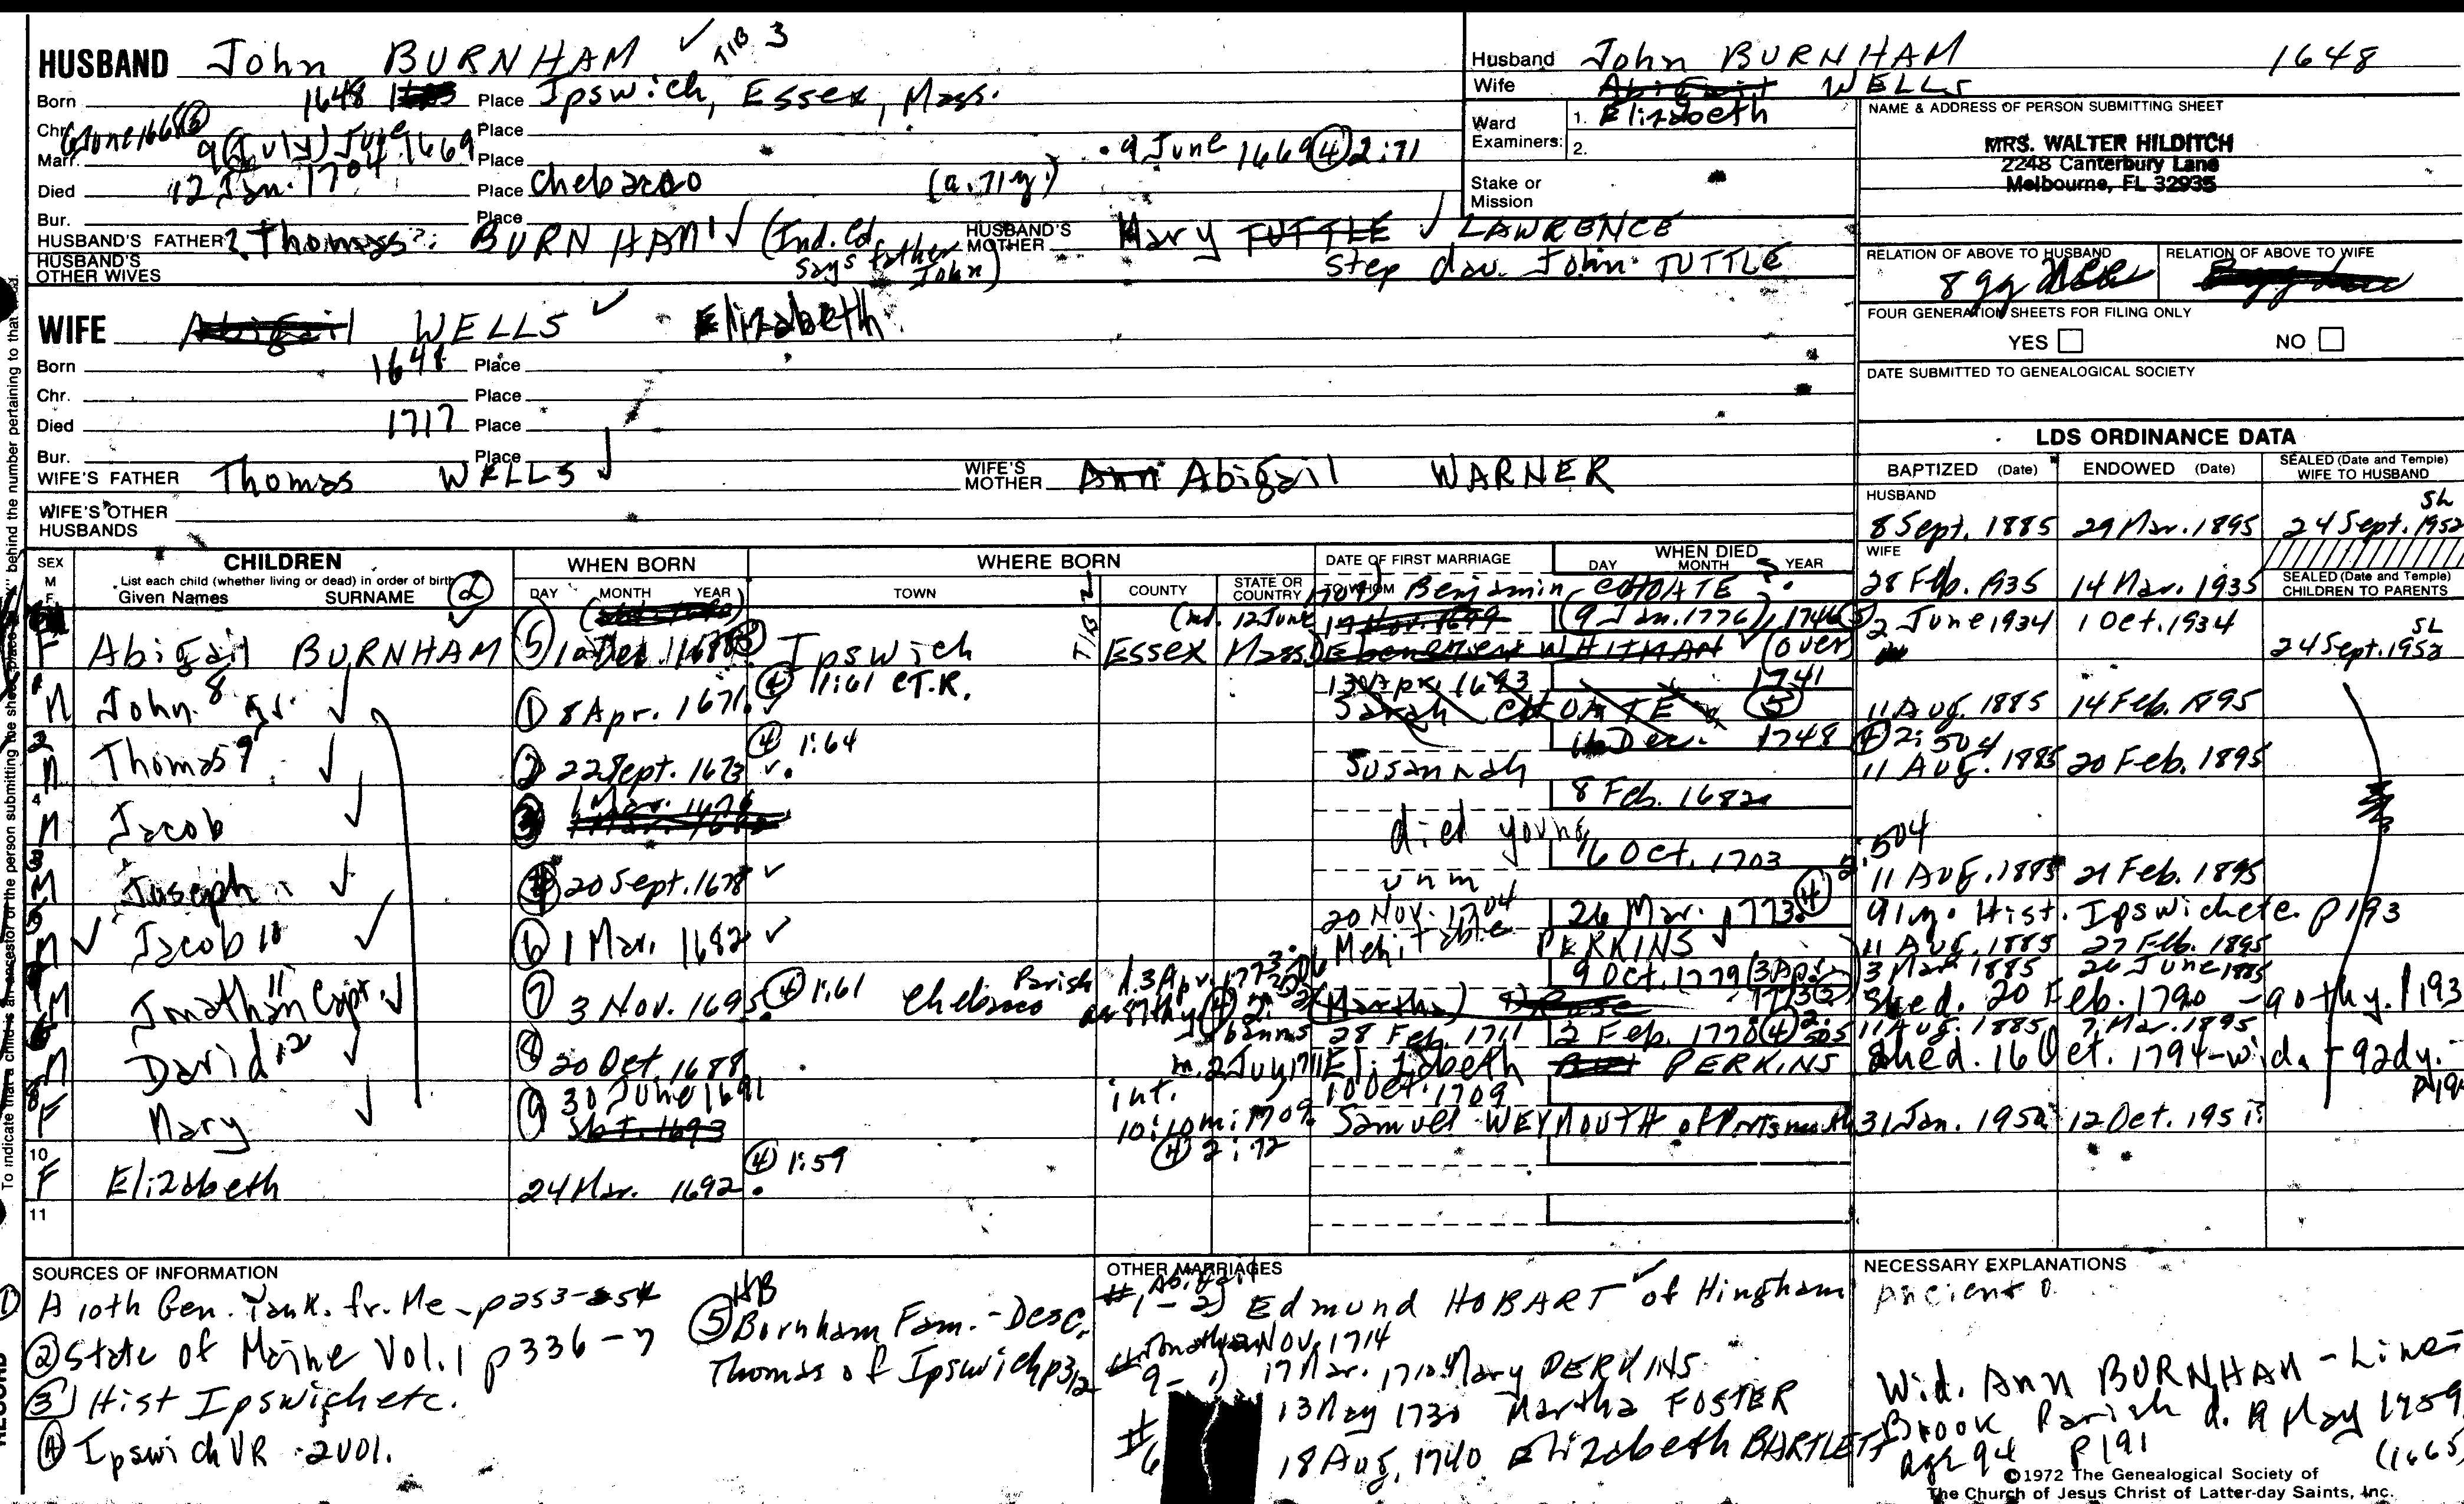 HUSBAND John BURNHAM ✓ TIB 3
Born 1648 Place Ipswich, Essex, Mass.
Chr. Place
6 June 1668 ③ 9 (July) June 1669
Marr. Place • 9 June 1669 ④ 2:71
Died 12 Jan. 1704 Place Chebacco (a. 71y.)
Bur. Place
HUSBAND'S FATHER ? Thomas ?: BURNHAM ✓ (Ind. Cd says father John) HUSBAND'S MOTHER Mary TUTTLE ✓ LAWRENCE
HUSBAND'S OTHER WIVES step dau. John TUTTLE
WIFE Abigail WELLS ✓ Elizabeth
Born 1648 Place
Chr. Place
Died 1717 Place
Bur. Place
WIFE'S FATHER Thomas WELLS ✓ WIFE'S MOTHER Ann Abigail WARNER
WIFE'S OTHER HUSBANDS
Husband John BURNHAM 1648
Wife Abigail WELLS
Elizabeth
Ward Examiners: 1. 2.
Stake or Mission
NAME & ADDRESS OF PERSON SUBMITTING SHEET
MRS. WALTER HILDITCH
2248 Canterbury Lane
Melbourne, FL 32935
RELATION OF ABOVE TO HUSBAND RELATION OF ABOVE TO WIFE
8 gg
FOUR GENERATION SHEETS FOR FILING ONLY
YES NO
DATE SUBMITTED TO GENEALOGICAL SOCIETY
LDS ORDINANCE DATA
BAPTIZED (Date) ENDOWED (Date) SEALED (Date and Temple) WIFE TO HUSBAND
HUSBAND SL
8 Sept. 1885 29 Mar. 1895 24 Sept. 1952
WIFE
28 Feb. 1935 14 Mar. 1935 SEALED (Date and Temple) CHILDREN TO PARENTS
SEX M F CHILDREN WHEN BORN WHERE BORN DATE OF FIRST MARRIAGE WHEN DIED
List each child (whether living or dead) in order of birth ②
Given Names SURNAME DAY MONTH YEAR TOWN COUNTY STATE OR COUNTRY TO WHOM DAY MONTH YEAR
TIB 2 Benjamin CHOATE
(md. 12 June 1709) 19 Nov. 1699 (9 Jan. 1776), 1746 ⑤ 2 June 1934 1 Oct. 1934 SL
F Abigail BURNHAM ⑤ Ipswich Essex Mass. Ebenezer WHITMAN ✓ (over) 24 Sept. 1952
④ 1:61 CT.R. 13 Apr. 1693 1741
M John 8 Jr. ✓ ① 8 Apr. 1671 Sarah CHOATE ⑤ 11 Aug. 1885 14 Feb. 1895
④ 1:64 16 Dec. 1748 ④ 2:504
M Thomas 9 ✓ ② 22 Sept. 1673 Susannah 11 Aug. 1885 20 Feb. 1895
1 Mar. 1676 8 Feb. 1682
M Jacob ✓ ③ died young
16 Oct. 1703 2:504
M Joseph ✓ ④ 20 Sept. 1678 ✓ unm 11 Aug. 1885 21 Feb. 1895
20 Nov. 1704 26 Mar. 1773 ④ 91y. Hist. Ipswich etc. p193
M ✓ Jacob 10 ✓ ⑥ 1 Mar. 1682 ✓ Mehitable PERKINS ✓ 11 Aug. 1885 27 Feb. 1895
9 Oct. 1779 (3 Apr. 1773 ③) 3 Mar 1885 26 June 1885
M Jonathan 11 Capt. ✓ ⑦ 3 Nov. 1695 ④ 1:61 Chebacco Parish d. 3 Apr. 1773 ae 87thy (Martha) Rose Shed. 20 Feb. 1790 - 90thy. p193
banns 28 Feb. 1711 2 Feb. 1770 ④ 2:505 11 Aug. 1885 7 Mar. 1895
M David 12 ✓ ⑧ 20 Oct. 1688 m. 2 July 1711 Elizabeth PERKINS Shed. 16 Oct. 1794 - wid. - 92dy.
30 June 1691 int. 10 Oct. 1709
F Mary ✓ ⑨ Sbt. 1693 10:10m:1709 Samuel WEYMOUTH of Portsmouth 31 Jan. 1950 12 Oct. 1951
④ 2:72
10 F Elizabeth 24 Mar. 1692 ④ 1:59
11
SOURCES OF INFORMATION
① A 10th Gen. Yank. fr. Me - p253-254
② State of Maine Vol. 1 p336-7
③ Hist Ipswich etc.
④ Ipswich VR 2 vol.
HB
⑤ Burnham Fam. - Desc. Thomas of Ipswich p312
OTHER MARRIAGES
#1 - Abigail 2) Edmund HOBART ✓ of Hingham
Nov. 1714
Jonathan
9 - 1) 17 Mar. 1710 Mary PERKINS
13 May 1730 Martha FOSTER
#6 18 Aug. 1740 Elizabeth BARTLETT
NECESSARY EXPLANATIONS
Wid. Ann BURNHAM - Line
Brook Parish d. 19 May 1759
age 94 p191 (1665)
©1972 The Genealogical Society of
The Church of Jesus Christ of Latter-day Saints, Inc.